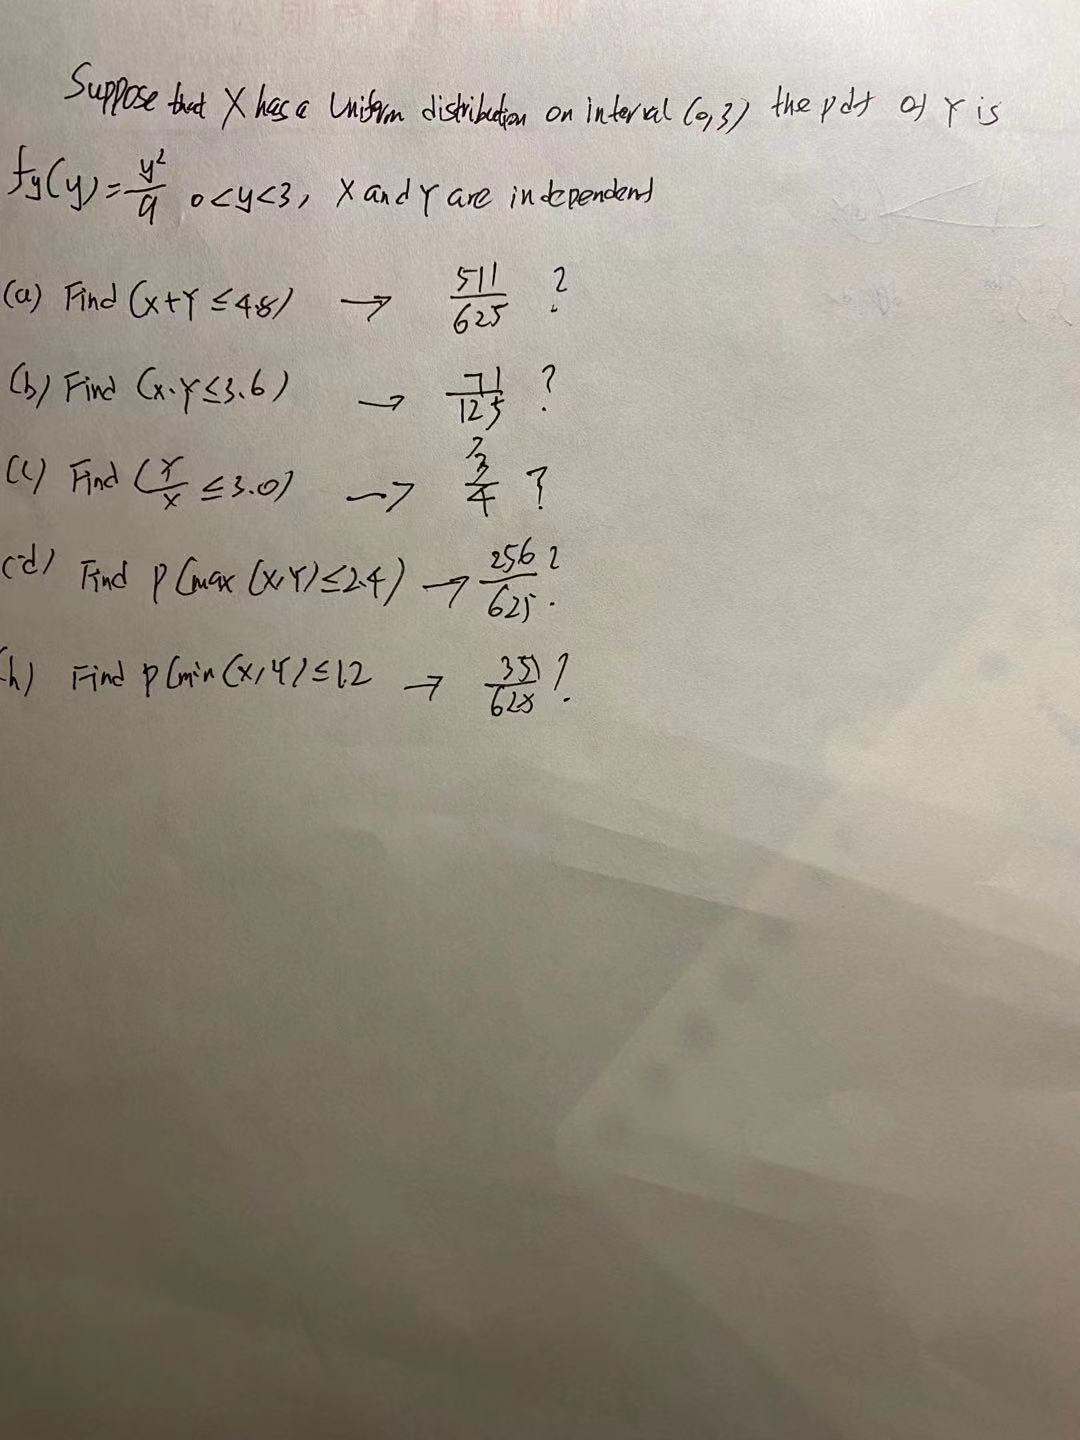 Suppose that X has a Uniform distribution on interval (0,3) the pdf of Y is
fy(y)=y²/9 0<y<3, X and Y are independent
(a) Find (X+Y ≤4.8) → 511/625 ?
(b) Find (X·Y≤3.6) → 71/125 ?
(c) Find (Y/X ≤3.0) → 3/4 ?
(d) Find P(max (X,Y)≤2.4) → 256/625 ?
(h) Find P(min (X,Y)≤1.2 → 351/625 ?